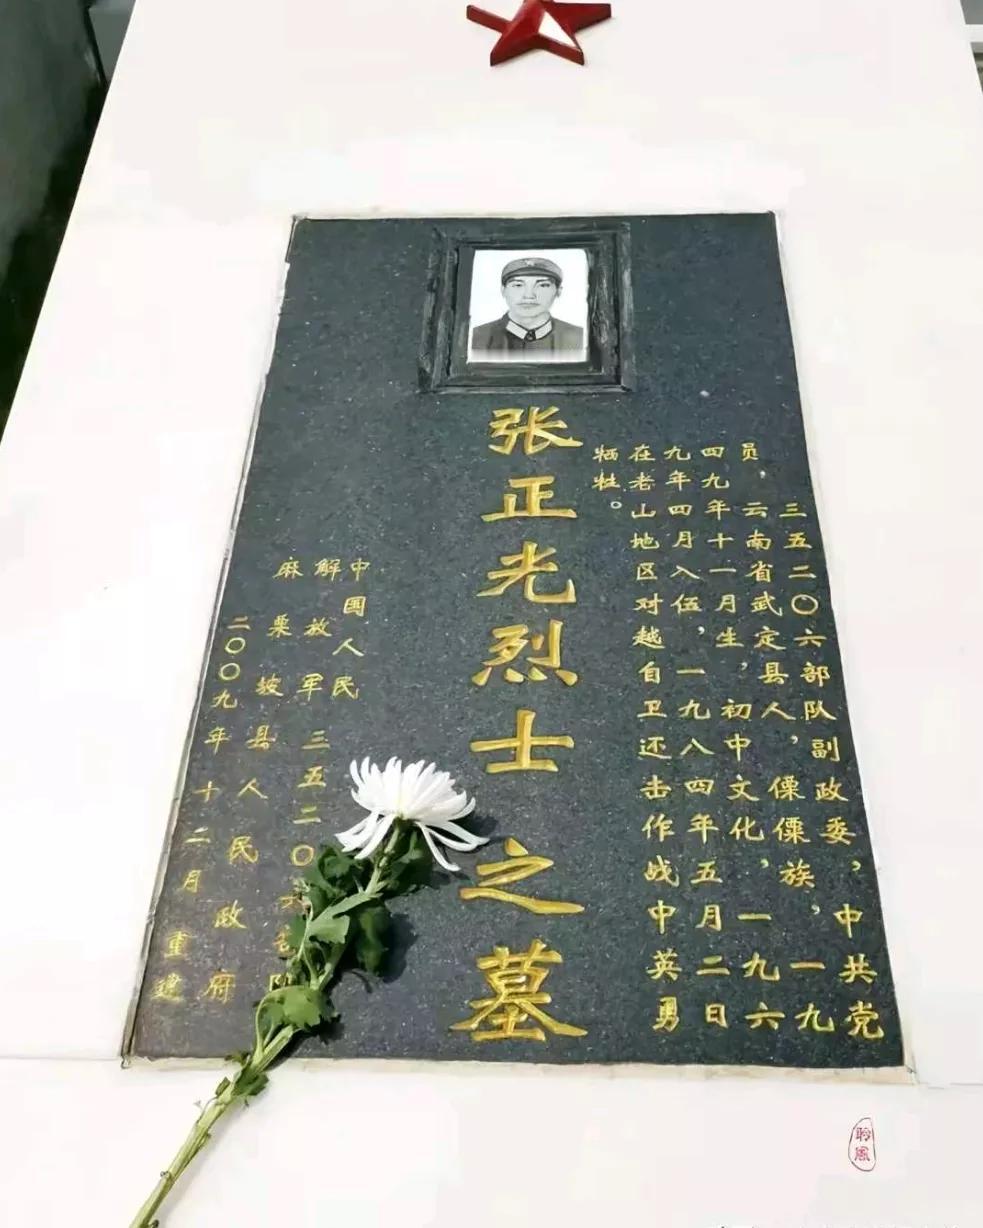 三五二〇六部队副政委，中共党
员，云南省武定县人，傈僳族，一九
四九年十一月生，初中文化，一九六
九年四月入伍，一九八四年五月二日
在老山地区对越自卫还击作战中英勇
牺牲。
张正光烈士之墓
中国人民
解放军三五二〇六部队
麻栗坡县人民政府
二〇〇九年十二月重建
聆風